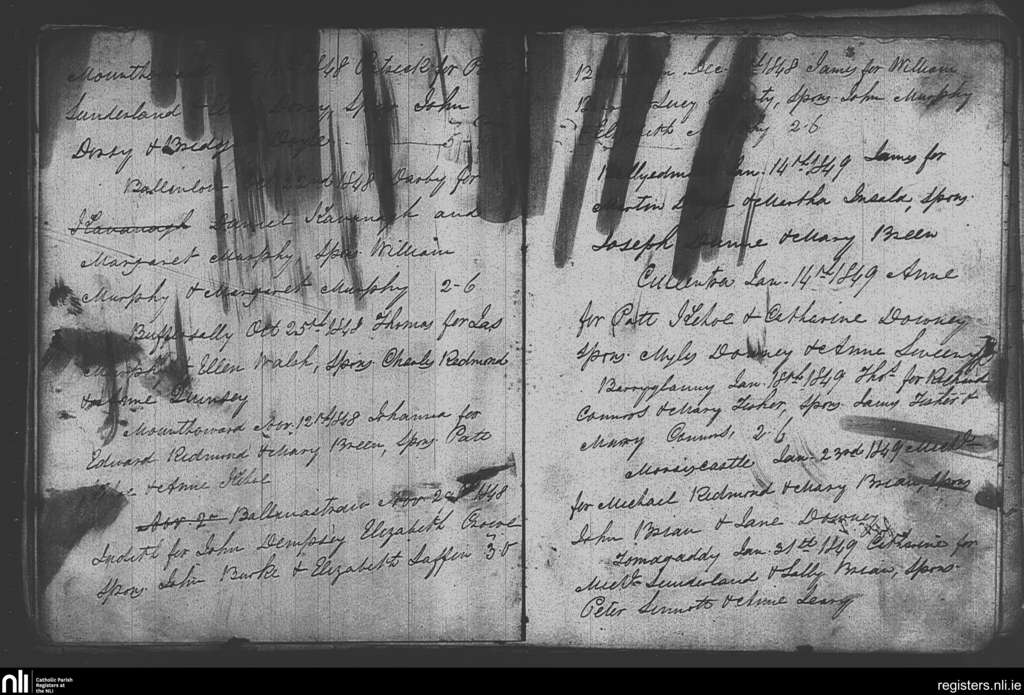 Mounthoward 1848 Patrick for Patt
Sunderland & Doxy, Spors John
Doxy & Bridget Doyle 5-
Ballinlow Oct 22nd 1848 Darby for
Kavanagh Daniel Kavanagh and
Margaret Murphy, Spors William
Murphy & Margaret Murphy 2-6
Oct 25th 1848 Thomas for Jas
Murphy & Ellen Walsh, Spors Charles Redmond
& Anne Quinsey
Mounthoward Nov. 12th 1848 Johanna for
Edward Redmond & Mary Breen, Spors Patt
Kehoe & Anne Kehoe
Nov 2 Ballinastraw Nov 22nd 1848
Judith for John Dempsey Elizabeth Crowe
Spors John Burke & Elizabeth Saffin 3-0
Dec 1848 James for William
Lucy Spors John Murphy
Elizabeth Murphy 2-6
Ballyedmond Jan. 14th 1849 James for
Martin Doyle & Martha Insala, Spors
Joseph Dunne & Mary Breen
Cullentra Jan. 14th 1849 Anne
for Patt Kehoe & Catharine Downey
Spors Myles Downey & Anne Sweeny
Berryglanny Jan. 18th 1849 Thos for Richard
Connors & Mary Fisher, Spors James Fisher &
Mary Connors, 2-6
Moraiscastle Jan. 23rd 1849 Michl
for Michael Redmond & Mary Brian, Spors
John Brian & Jane Downey
Tomagaddy Jan. 31st 1849 Catharine for
Michl Sunderland & Sally Brian, Spors
Peter Sinnott & Anne Leary
nli
Catholic Parish
Registers at
the NLI
registers.nli.ie